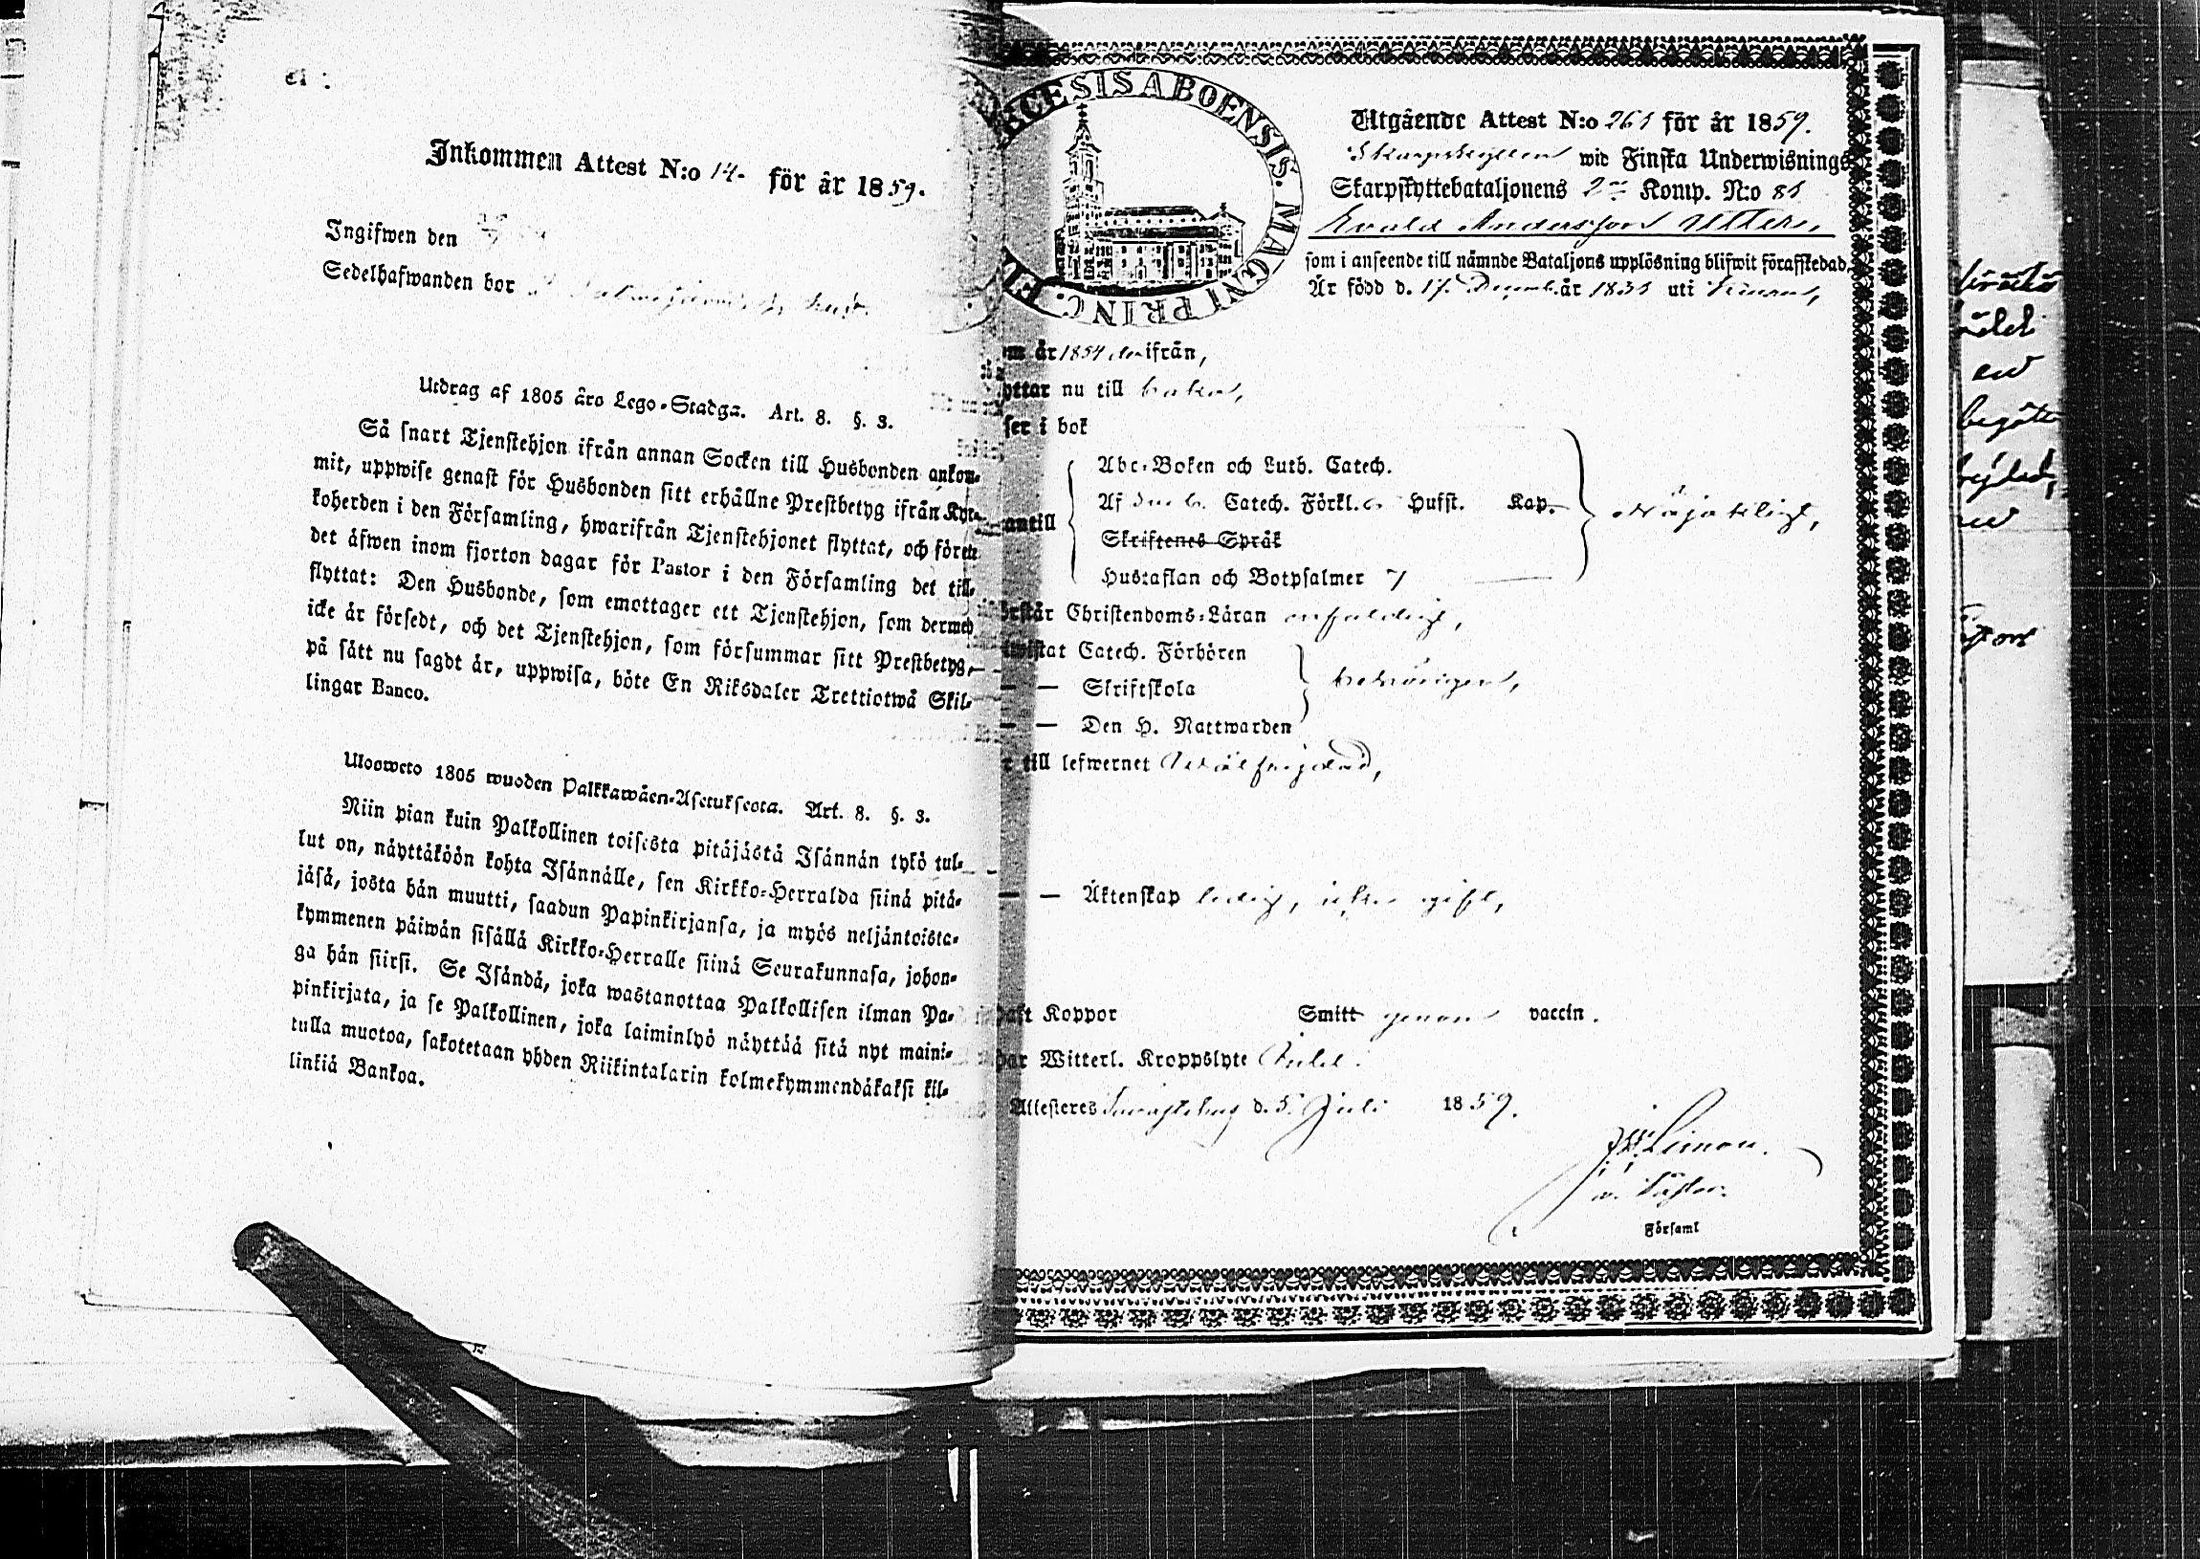 Inkommen Attest N:o 14. för år 1859.
Ingifwen den
Sedelhafwanden bor
Utdrag af 1805 års Lego-Stadga. Art. 8. §. 3.
Så snart Tjenstehjon ifrån annan Socken till Husbonden ankom-
mit, uppwise genast för Husbonden sitt erhållne Prestbetyg ifrån Kyr-
koherden i den Församling, hwarifrån Tjenstehjonet flyttat, och förete
det äfwen inom fjorton dagar för Pastor i den Församling det till-
flyttat: Den Husbonde, som emottager ett Tjenstehjon, som dermed
icke är försedt, och det Tjenstehjon, som försummar sitt Prestbetyg,
på sätt nu sagdt är, uppwisa, böte En Riksdaler Trettiotwå Skil-
lingar Banco.
Ulosweto 1805 wuoden Palkkawäen-Asetuksesta. Art. 8. §. 3.
Niin pian kuin Palkollinen toisesta pitäjästä Isännän tykö tul-
lut on, näyttäköön kohta Isännälle, sen Kirkko-Herralda siinä pitä-
jäsä, josta hän muutti, saadun Papinkirjansa, ja myös neljäntoista-
kymmenen päiwän sisällä Kirkko-Herralle siinä Seurakunnasa, johon-
ga hän siirsi. Se Isändä, joka wastanottaa Palkollisen ilman Pa-
pinkirjata, ja se Palkollinen, joka laiminlyö näyttää sitä nyt maini-
tulla muotoa, sakotetaan yhden Riikintalarin kolmekymmendäkaksi kil-
linkiä Bankoa.
CESIS ABOENSIS. MAGNI PRINC.
Utgående Attest N:o 261 för år 1859.
Skarpskytten wid Finska Underwisnings
Skarpskyttebataljonens 2 Komp. N:o 81
Evald Andersson
som i anseende till nämnde Bataljons upplösning blifwit förafskedad,
Är född d. 17 December år 1835 uti
om år 1854 ifrån,
yttar nu till
ser i bok
Abc-Boken och Luth. Catech.
Af Catech. Förkl. Hufst. Kap.
antill
Skriftenes Språk
Hustaflan och Botpsalmer 7
Nöjaktligt,
örstår Christendoms-Läran enfaldigt,
wistat Catech. Förhören
— — Skriftskola
behörigen,
— — Den H. Nattwarden
r till lefwernet Wälfrejdad,
— — Äktenskap ledig, icke gift,
haft Koppor Smitt genom vaccin.
har Witterl. Kroppslyte
Attesteres Tavastehus d. 5 Juli 1859.
Limon.
Församl